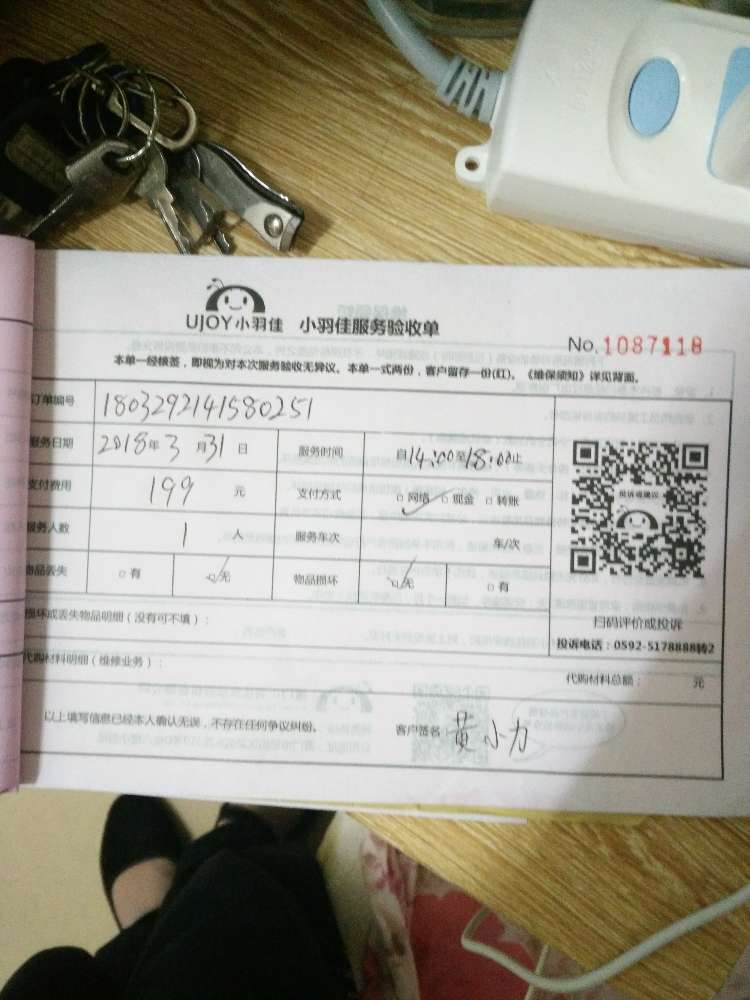 UJOY小羽佳 小羽佳服务验收单
No. 1087118
本单一经核签，即视为对本次服务验收无异议。本单一式两份，客户留存一份(红)。《维保须知》详见背面。
订单编号 1803292141580251
服务日期 2018年3月31日 服务时间 自14:00至18:00止
支付费用 199 元 支付方式 □网络 □现金 □转账
服务人数 1 人 服务车次 车/次
物品丢失 □有 □无 物品损坏 □无 □有
投诉或建议
扫码评价或投诉
投诉电话：0592-5178888转2
损坏或丢失物品明细（没有可不填）：
代购材料明细（维修业务）： 代购材料总额： 元
以上填写信息已经本人确认无误，不存在任何争议纠纷。 客户签名：黄小力